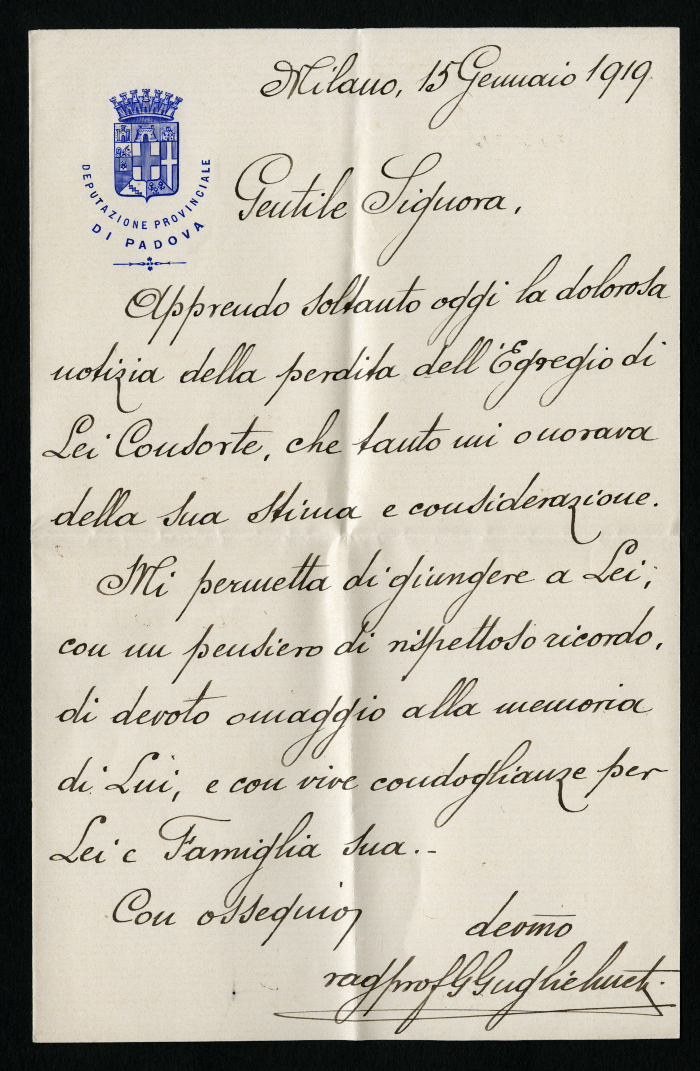 Milano, 15 Gennaio 1919.
DEPUTAZIONE PROVINCIALE
DI PADOVA
Gentile Signora,
Apprendo soltanto oggi la dolorosa
notizia della perdita dell'Egregio di
Lei Consorte, che tanto mi onorava
della sua stima e considerazione.
Mi permetta di giungere a Lei,
con un pensiero di rispettoso ricordo,
di devoto omaggio alla memoria
di Lui, e con vive condoglianze per
Lei e Famiglia sua.-
Con ossequio,
devmo
rag prof G